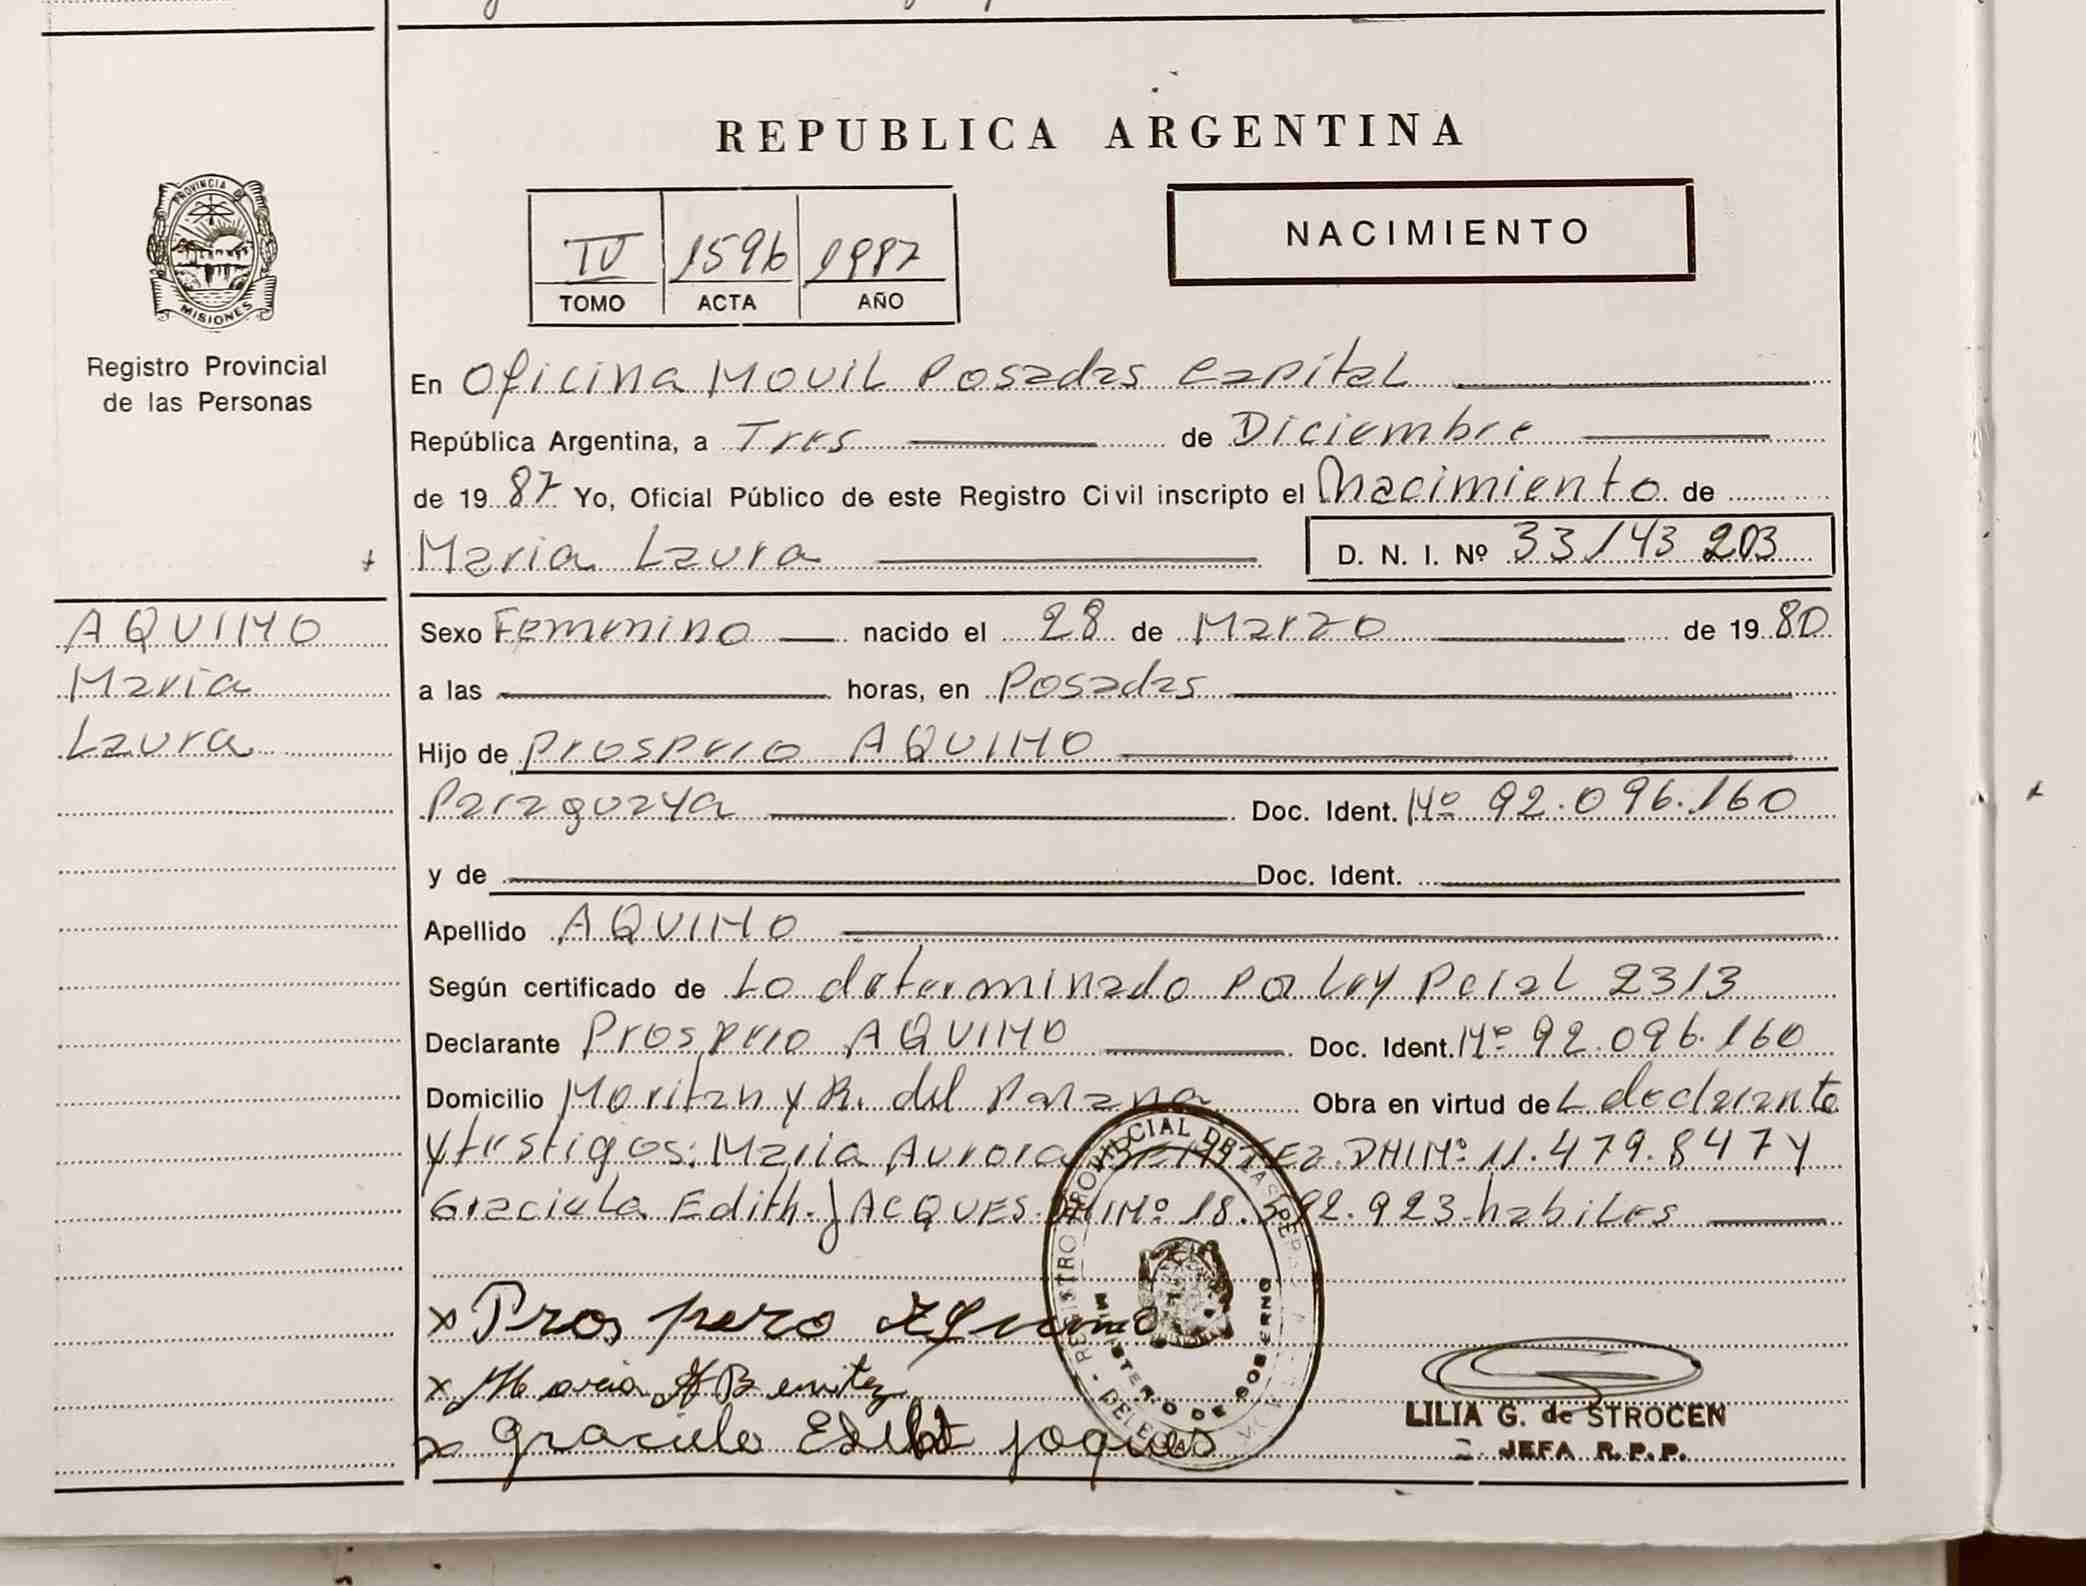 REPUBLICA ARGENTINA
PROVINCIA DE
MISIONES
Registro Provincial
de las Personas
IV 1596 1987
TOMO ACTA AÑO
NACIMIENTO
En Oficina Movil Posadas Capital
República Argentina, a Tres de Diciembre
de 19 87 Yo, Oficial Público de este Registro Civil inscripto el Nacimiento de
Maria Laura D. N. I. Nº 33143 203
AQUINO
Maria
Laura
Sexo Femenino nacido el 28 de Marzo de 19 80
a las horas, en Posadas
Hijo de Prospero AQUINO
Paraguaya Doc. Ident. Nº 92.096.160
y de Doc. Ident.
Apellido AQUINO
Según certificado de Lo determinado por Ley Pcial 2313
Declarante Prospero AQUINO Doc. Ident. Nº 92.096.160
Domicilio Moritan y R. del Parana Obra en virtud de L declarante
y testigos: Maria Aurora DNI Nº 11.479.847 y
Graciela Edith JACQUES. DNI Nº 18. 923 habiles
Prospero Aquino
Maria A Benitez
Graciela Edith
REGISTRO PROVINCIAL DE LAS PERSONAS
MINISTERIO DE GOBIERNO
LILIA G. de STROCEN
JEFA R.P.P.